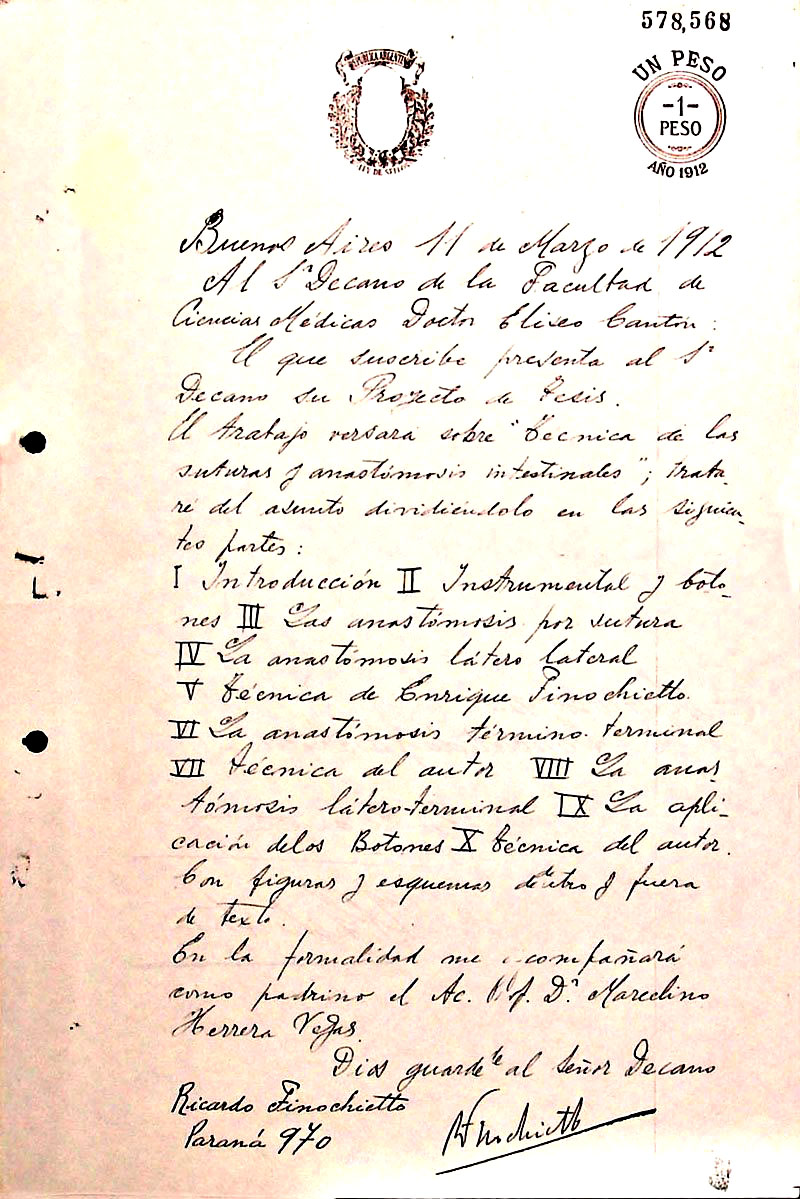 578,568
REPUBLICA ARGENTINA
UN PESO
-1-
PESO
AÑO 1912
LEY DE SELLOS
Buenos Aires 11 de Marzo de 1912
Al Sr Decano de la Facultad de
Ciencias Médicas Doctor Eliseo Cantón:
El que suscribe presenta al Sr
Decano su Proyecto de tesis.
El trabajo versará sobre "Técnica de las
suturas y anastómosis intestinales"; trata-
ré del asunto dividiéndolo en las siguien-
tes partes:
I Introducción II Instrumental y boto-
nes III Las anastómosis por sutura
IV La anastómosis látero lateral
V Técnica de Enrique Finochietto.
VI La anastómosis término-terminal
VII Técnica del autor VIII La anas-
tómosis látero-terminal IX La apli-
cación de los Botones X Técnica del autor.
Con figuras y esquemas dentro y fuera
de texto.
En la formalidad me acompañará
como padrino el Ac. Prof. Dr Marcelino
Herrera Vegas.
Dios guarde al Señor Decano
Ricardo Finochietto
Paraná 970
RFinochietto
L.